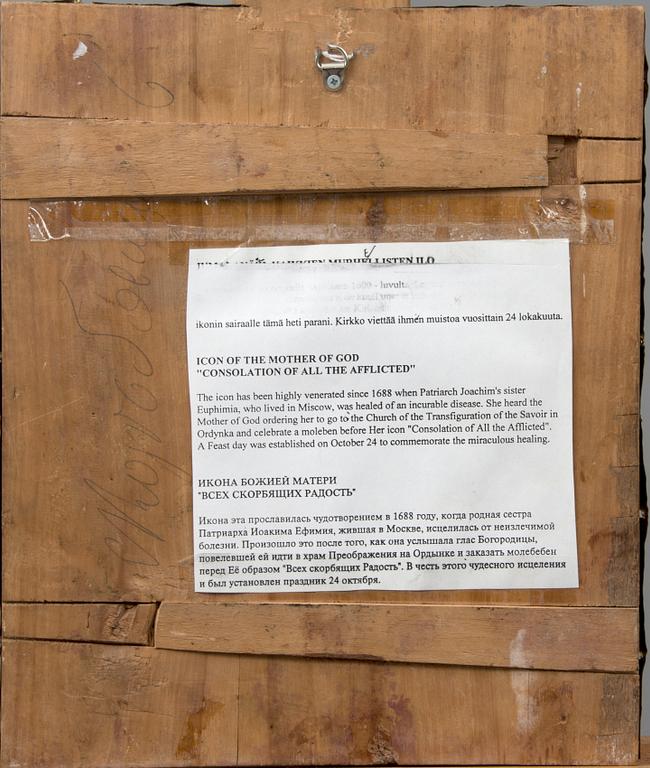 MURHELLISTEN ILO
1600 - luvulta
ikonin sairaalle tämä heti parani. Kirkko viettää ihmen muistoa vuosittain 24 lokakuuta.
ICON OF THE MOTHER OF GOD
"CONSOLATION OF ALL THE AFFLICTED"
The icon has been highly venerated since 1688 when Patriarch Joachim's sister
Euphimia, who lived in Miscow, was healed of an incurable disease. She heard the
Mother of God ordering her to go to the Church of the Transfiguration of the Savoir in
Ordynka and celebrate a moleben before Her icon "Consolation of All the Afflicted".
A Feast day was established on October 24 to commemorate the miraculous healing.
ИКОНА БОЖИЕЙ МАТЕРИ
"ВСЕХ СКОРБЯЩИХ РАДОСТЬ"
Икона эта прославилась чудотворением в 1688 году, когда родная сестра
Патриарха Иоакима Ефимия, жившая в Москве, исцелилась от неизлечимой
болезни. Произошло это после того, как она услышала глас Богородицы,
повелевшей ей идти в храм Преображения на Ордынке и заказать молебебен
перед Её образом "Всех скорбящих Радость". В честь этого чудесного исцеления
и был установлен праздник 24 октября.